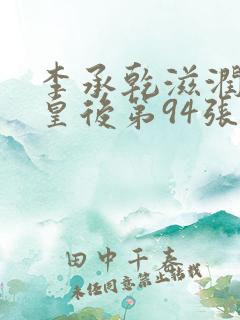 李承乾滋潤
皇後第94張
田中千春
未经同意禁止转载